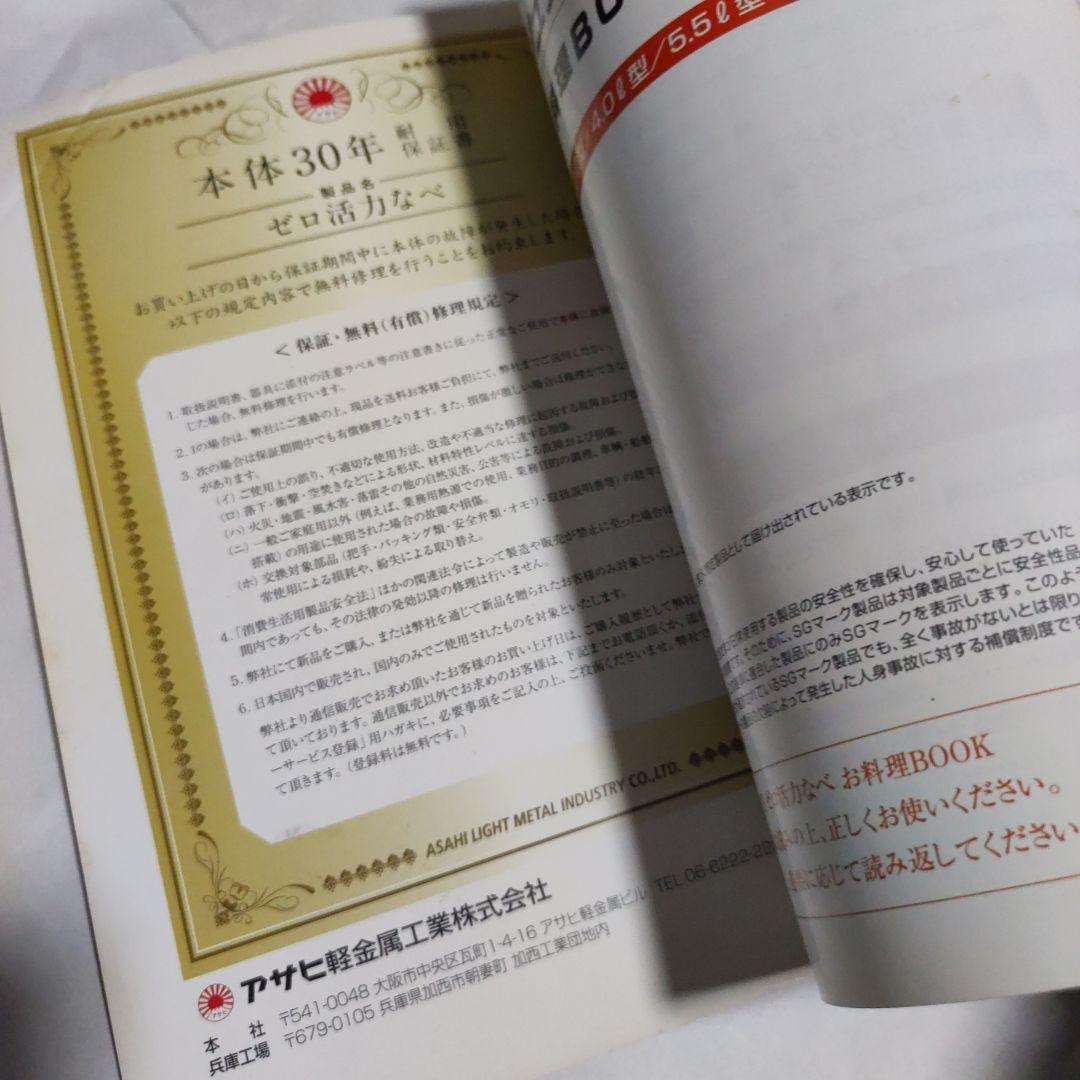 アサヒ
本体30年 耐用
保証書
製品名
ゼロ活力なべ
お買い上げの日から保証期間中に本体の故障が発生した場合
以下の規定内容で無料修理を行うことをお約束します。
＜保証・無料(有償)修理規定＞
1. 取扱説明書、器具に添付の注意ラベル等の注意書きに従った正常なご使用で
じた場合、無料修理を行います。
2. 1の場合は、弊社にご連絡の上、現品を送料お客様ご負担にて、弊社までご送付ください。
3. 次の場合は保証期間中でも有償修理となります。また、損傷が激しい場合は修理ができな
があります。
(イ) ご使用上の誤り、不適切な使用方法、改造や不適当な修理に起因する故障および
(ロ) 落下・衝撃・空焚きなどによる形状、材料特性レベルに達する損傷。
(ハ) 火災・地震・風水害・落雷その他の自然災害、公害等による故障および損傷。
(ニ) 一般ご家庭用以外 (例えば、業務用熱源での使用、業務目的の調理、車輌・船舶
搭載) の用途に使用された場合の故障や損傷。
(ホ) 交換対象部品 (把手・パッキング類・安全弁類・オモリ・取扱説明書等) の経年
常使用による損耗や、紛失による取り替え。
4.「消費生活用製品安全法」ほかの関連法令によって製造や販売が禁止に至った場合は
間内であっても、その法律の発効以降の修理は行いません。
5. 弊社にて新品をご購入、または弊社を通じて新品を贈られたお客様のみ対象といたし
6. 日本国内で販売され、国内のみでご使用されたものを対象といたします。
弊社より通信販売でお求め頂いたお客様のお買い上げ日は、ご購入履歴として弊社
て頂いております。通信販売以外でお求めのお客様は、下記までお電話頂くか、
ーサービス登録」用ハガキに、必要事項をご記入の上、ご投函くださいませ。弊社で
て頂きます。(登録料は無料です。)
ASAHI LIGHT METAL INDUSTRY CO.,LTD.
アサヒ
アサヒ軽金属工業株式会社
本社 〒541-0048 大阪市中央区瓦町1-4-16 アサヒ軽金属ビル TEL 06-6222-22
兵庫工場 〒679-0105 兵庫県加西市朝妻町 加西工業団地内
4.0ℓ型/5.5ℓ型
製品として届け出されている表示です。
使用する製品の安全性を確保し、安心して使っていた
す。そのために、SGマーク製品は対象製品ごとに安全性品
に適合した製品にのみSGマークを表示します。このよう
れているSGマーク製品でも、全く事故がないとは限り
によって発生した人身事故に対する補償制度です
活力なべ お料理BOOK
の上、正しくお使いください。
に応じて読み返してください